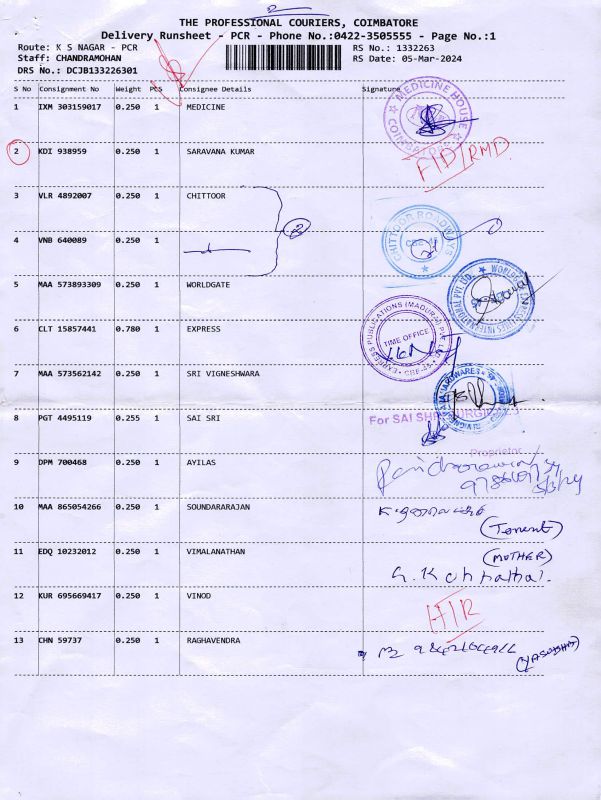 THE PROFESSIONAL COURIERS, COIMBATORE
Delivery Runsheet - PCR - Phone No.:0422-3505555 - Page No.:1
Route: K S NAGAR - PCR
RS No.: 1332263
Staff: CHANDRAMOHAN
RS Date: 05-Mar-2024
DRS No.: DCJB133226301
S No Consignment No Weight PCS Consignee Details Signature
1 IXM 303159017 0.250 1 MEDICINE
MEDICINE HOUSE
COIMBATORE
2 KDI 938959 0.250 1 SARAVANA KUMAR
F/D/RMD
3 VLR 4892007 0.250 1 CHITTOOR
2
CHITTOOR ROADWAYS
4 VNB 640089 0.250 1
5 MAA 573893309 0.250 1 WORLDGATE
6 CLT 15857441 0.780 1 EXPRESS
EXPRESS PUBLICATIONS (MADURAI) PVT. LTD.
TIME OFFICE
7 MAA 573562142 0.250 1 SRI VIGNESHWARA
8 PGT 4495119 0.255 1 SAI SRI
For SAI
Proprietor
9 DPM 700468 0.250 1 AYILAS
5/3/24
10 MAA 865054266 0.250 1 SOUNDARARAJAN
(Tenent)
11 EDQ 10232012 0.250 1 VIMALANATHAN
(MOTHER)
12 KUR 695669417 0.250 1 VINOD
H/R
13 CHN 59737 0.250 1 RAGHAVENDRA